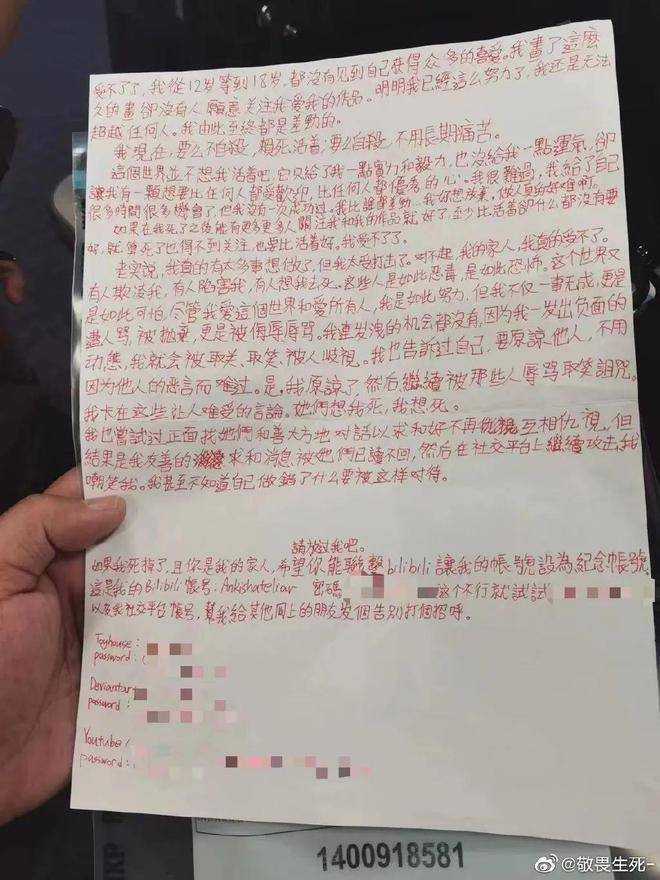 受不了了，我從12岁等到18岁，都沒有见到自己获得众多的喜爱。我畫了這麼
久的畫卻沒有人願意关注我爱我的作品。明明我已經這么努力了，我还是无法
超越任何人。我由此至终都是差勁的。
我現在，要么不自殺，賴死活着，要么自殺，不用長期痛苦。
這個世界並不想我活着吧，它只給了我一點實力和毅力，也沒給我一點運氣，卻
讓我有一顆想要比任何人都受歡迎，比任何人都優秀的心。我很難過，我給了自己
很多時間很多機會了，但我沒有一次成功过。我好想放棄，做人真的好难啊。
如果在我死了之後能有更多人關注我和我的作品就好了，至少比活着卻什么都沒有要
好，就算死了也得不到关注，也要比活着好。我受不了了。
老实說，我真的有太多事想做了，但我太受打击了。对不起，我的家人，我真的受不了。
有人欺凌我，有人陷害我，有人想我去死。这些人是如此恶毒，是如此恐怖。这个世界又
是如此可怕，尽管我爱這個世界和爱所有人，我是如此努力，但我不仅一事无成，更是
遭人骂，被抛棄，更是被侮辱辱骂。我連发洩的机会都沒有，因为我一发出负面的
动態，我就会被取关、取笑、被人歧視。我也告訴过自己，要原諒他人，不用
因为他人的恶言而难过。是，我原諒了，然后繼續被那些人辱骂取笑詛咒。
我卡在这些让人难受的言論。她們想我死，我想死。
我也嘗試过正面找她們和善大方地对话以求和好不再互相仇視，但
结果是我友善的求和消息被她們已讀不回，然后在社交平台上繼續攻击我
嘲笑我。我甚至不知道自己做錯了什么要被这样对待。
請放过我吧。
如果我死掉了，且你是我的家人，希望你能聯繫bilibili讓我的帳號設為紀念帳號
這是我的Bilibili帳号：Ankishateliar 密碼 这个不行就試試
以及我社交平台帳号，幫我給其他网上的朋友发個告别打個招呼。
Toyhouse：
password：
Deviantart
password：
Youtube
password：
1400918581
@敬畏生死-